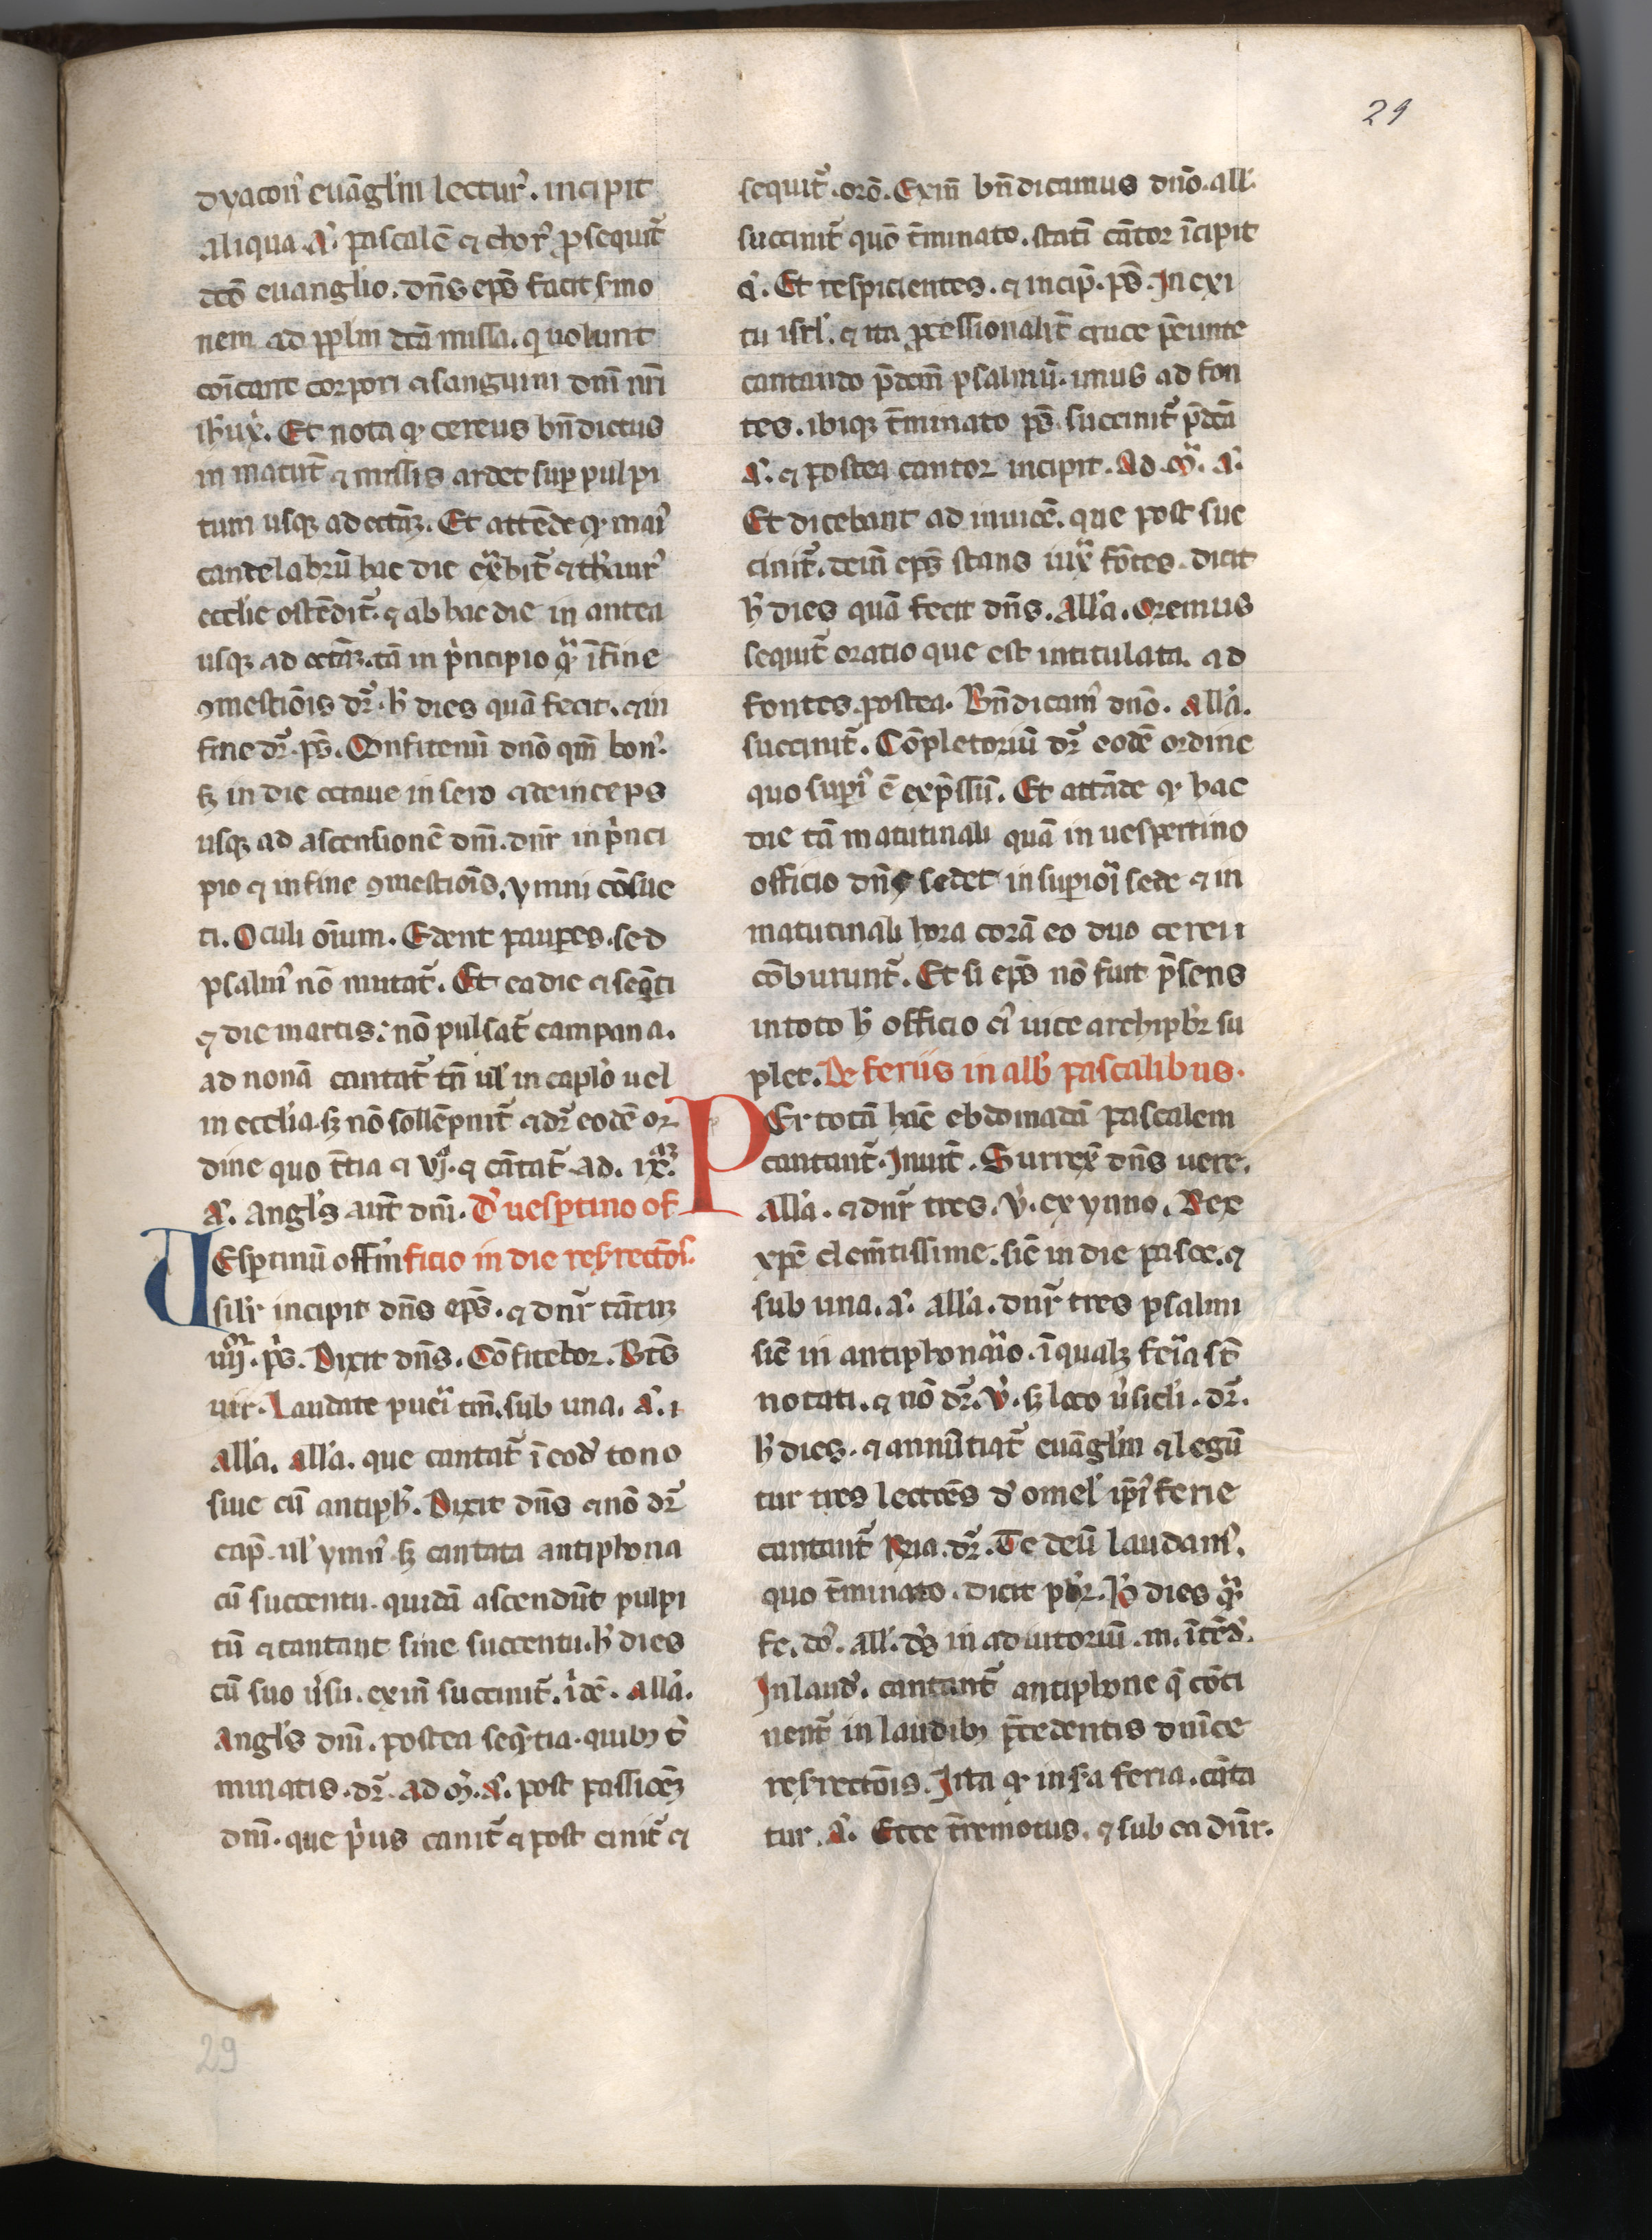 29
dyacon᾽ euāgl'm lectur᾽. incipit
aliqua. A᾽. pascalē ⁊ chor᾽ ꝓsequit᷑
dcō euanglio. dn̄s ep̄s facit s̓mo
nem ad pp̄lm dcā missa. q uolunt
coīcare corpori ⁊ sanguini dnī nrī
ih'u xp̄i. Et nota qꝫ cereus bn̄dictus
in matut̄ ⁊ missis ardet suꝑ pulpi
tum usqꝫ ad octāꝫ. Et attēde qꝫ mai᾽
candelabrū hac die exͣbit᷑ ⁊ thˀaur᾽
ecclie ostēdit᷑. ⁊ ab hac die in antea
usqꝫ ad octāꝫ. tā in pͥncipio qͣꝫ ī fine
ꝯmestiōis dr̄. h᾽ dies quā fecit. ⁊ in
fine dr̄. ps̄. Confitemī dnō qm̄ bon᾽.
sꝫ in die octaue in sero ⁊ deinceps
usqꝫ ad ascensionē dnī. dn̄r in pͥnci
pio ⁊ in fine ꝯmestiōis. ymni cōsue
ti. Oculi oīum. Edent pauꝑes. sed
psalm᾽ nō mutat᷑. Et ea die ⁊ seq̄ti
⁊ die martis: nō pulsat᷑ campana.
ad nonā cantat᷑ tn̄ ul' in caplo uel
in ecclia. sꝫ nō sollēpnit̄ ⁊ dr̄ eodē or
dine quo t̄tia ⁊ vj. ⁊ cātat᷑ ad. ix.
A᾽. Angl's aut̄ dnī. D᾽ uesꝑtino of
VEsꝑtinū offm ficio in die resͬrectōis.
sil'r incipit dn̄s ep̄s. ⁊ dn̄r tātūꝫ
iiij. ps̄. Dixit dn̄s. Cōfitebor. Bt̄s
uir. Laudate pueri tm̄. sub una. A᾽. i
All'a. All'a. que cantat᷑ ī eod᾽ tono
siue cū antiph᾽. Dixit dn̄s ⁊ nō dr̄
cap̄. ul' ymn᾽. sꝫ cantata antiphona
cū succentu. quidā ascendūt pulpi
tū ⁊ cantant sine succentu. h᾽ dies
cū suo ũsu. exin̄ succinit᷑. ìdē. All'a.
Angl's dnī. postea seq̄tia. quibꝫ t᾽
minatis. dr̄. ad m᾽. A᾽. post passiōeꝫ
dnī. que pͥus canit᷑ ⁊ post cinit᷑ ⁊
sequit᷑. orō. Exin̄ bn̄dicamus dnō. all'.
succinit᷑ quo t̄minato. statī cātor īcipit
A᾽. Et respicientes. ⁊ incip̄. ps̄. In exi
tu isrl'. ⁊ ita ꝓcessionalit̄ cruce p̄eunte
cantando p̄dcm̄ psalmū. imus ad fon
tes. ibiqꝫ t̄minato ps̄. succinit᷑ p̄dcā
A᾽. ⁊ postea cantor incipit. Ad. mͣ. A᾽.
Et dicebant ad inuicē. que post suc
cinit᷑. dein̄ ep̄s stans iuxͣ fōtes. dicit
h᾽ dies quā fecit dn̄s. All'a. Oremus
sequit᷑ oratio que est intitulata. ad
fontes. postea. Bn̄dicam᾽ dnō. All'a.
succinit᷑. Cōpletoriū dr̄ eodē ordine
quo supi᾽ ē exp̄ssū. Et attāde qꝫ hac
die tā matutinali quā in uespertino
officio dn̄s sedet in suꝑiori sede ⁊ in
matutinali hora corā eo duo cerei
cōburunt᷑. Et si ep̄s nō fuit p̄sens
in toto h᾽ officio ei᾽ uice archip̄br su
plet. De feriis in alb᾽ pascalibus.
PEr totā hāc ebdomadā pascalem
cantant᷑. Inuit̄. Surrex̄ dn̄s uere.
All'a. ⁊ dn̄r tres. V᾽. ex ymno. Rex
xp̄e clem̄tissime. sic̄ in die pasce. ⁊
sub una. A᾽. All'a. dn̄r tres psalmi
sic̄ in antiphonario. ī qualꝫ feria st̄
notati. ⁊ nō dr̄. V᾽. sꝫ loco ũsicl'i. dr̄.
h᾽ dies. ⁊ annūtiat᷑ euāgl'm ⁊ legū
tur tres lectōes d᾽ omel' ip̄i᾽ ferie
cantant᷑ Rͥia. dr̄. Te deū laudam᾽.
quo t̄minato. dicit pb̄r. H᾽ dies qͣꝫ
fe. do᾽. all'. ds̄ in adiutoriū. m. ītēd᾽.
In laud᾽. cantant᷑ antiphone q̄ cōti
nent᷑ in laudibꝫ p̄cedentis dnīce
resͬrectōis. Ita qꝫ in ija feria. cāta
tur. A᾽. Ecce t̄remotus. ⁊ sub ea dn̄r.
29